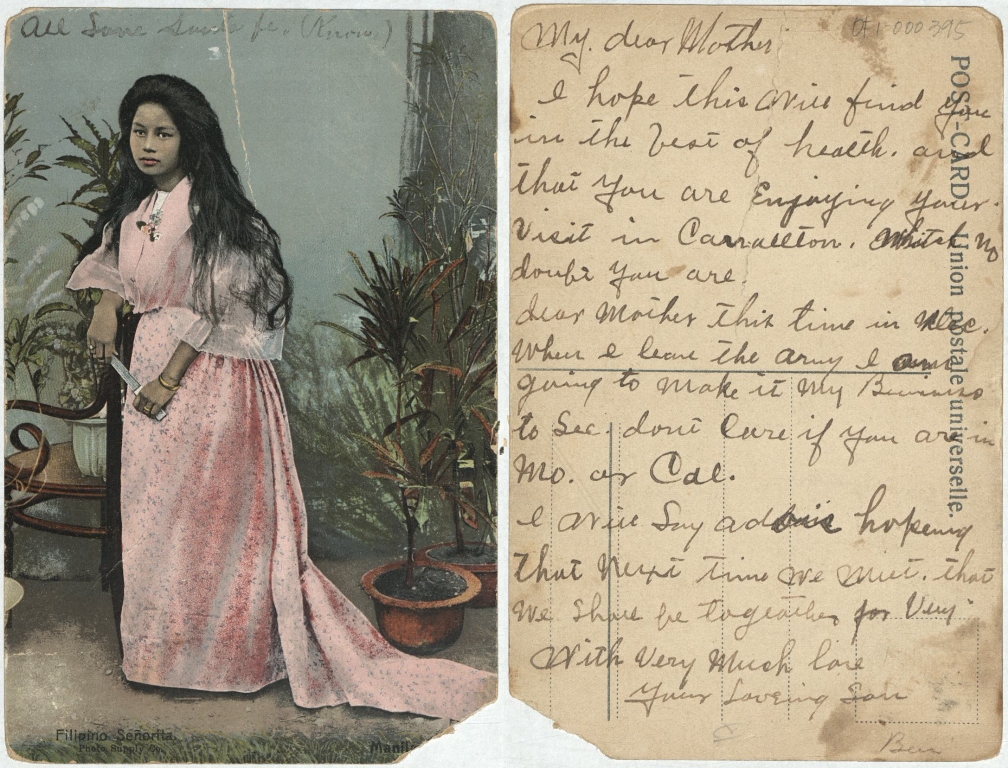 All Same Same fe. (Know)
Filipino Señorita.
Photo Supply Co.
Manila
OA1-000395
POST-CARD. Union postale universelle.
My. dear Mother
I hope this will find you
in the best of health. and
that you are Enjoying your.
Visit in Carrollton. Which no
doubt you are.
dear Mother this time in Dec.
When I leave the army I am
going to make it my Business
to See. dont Care if you are in
Mo. or Cal.
I will Say adois hopeing
that Next time we meet. that
we Shall be togeather for Very
With Very Much love
Your Loveing Son
Ben